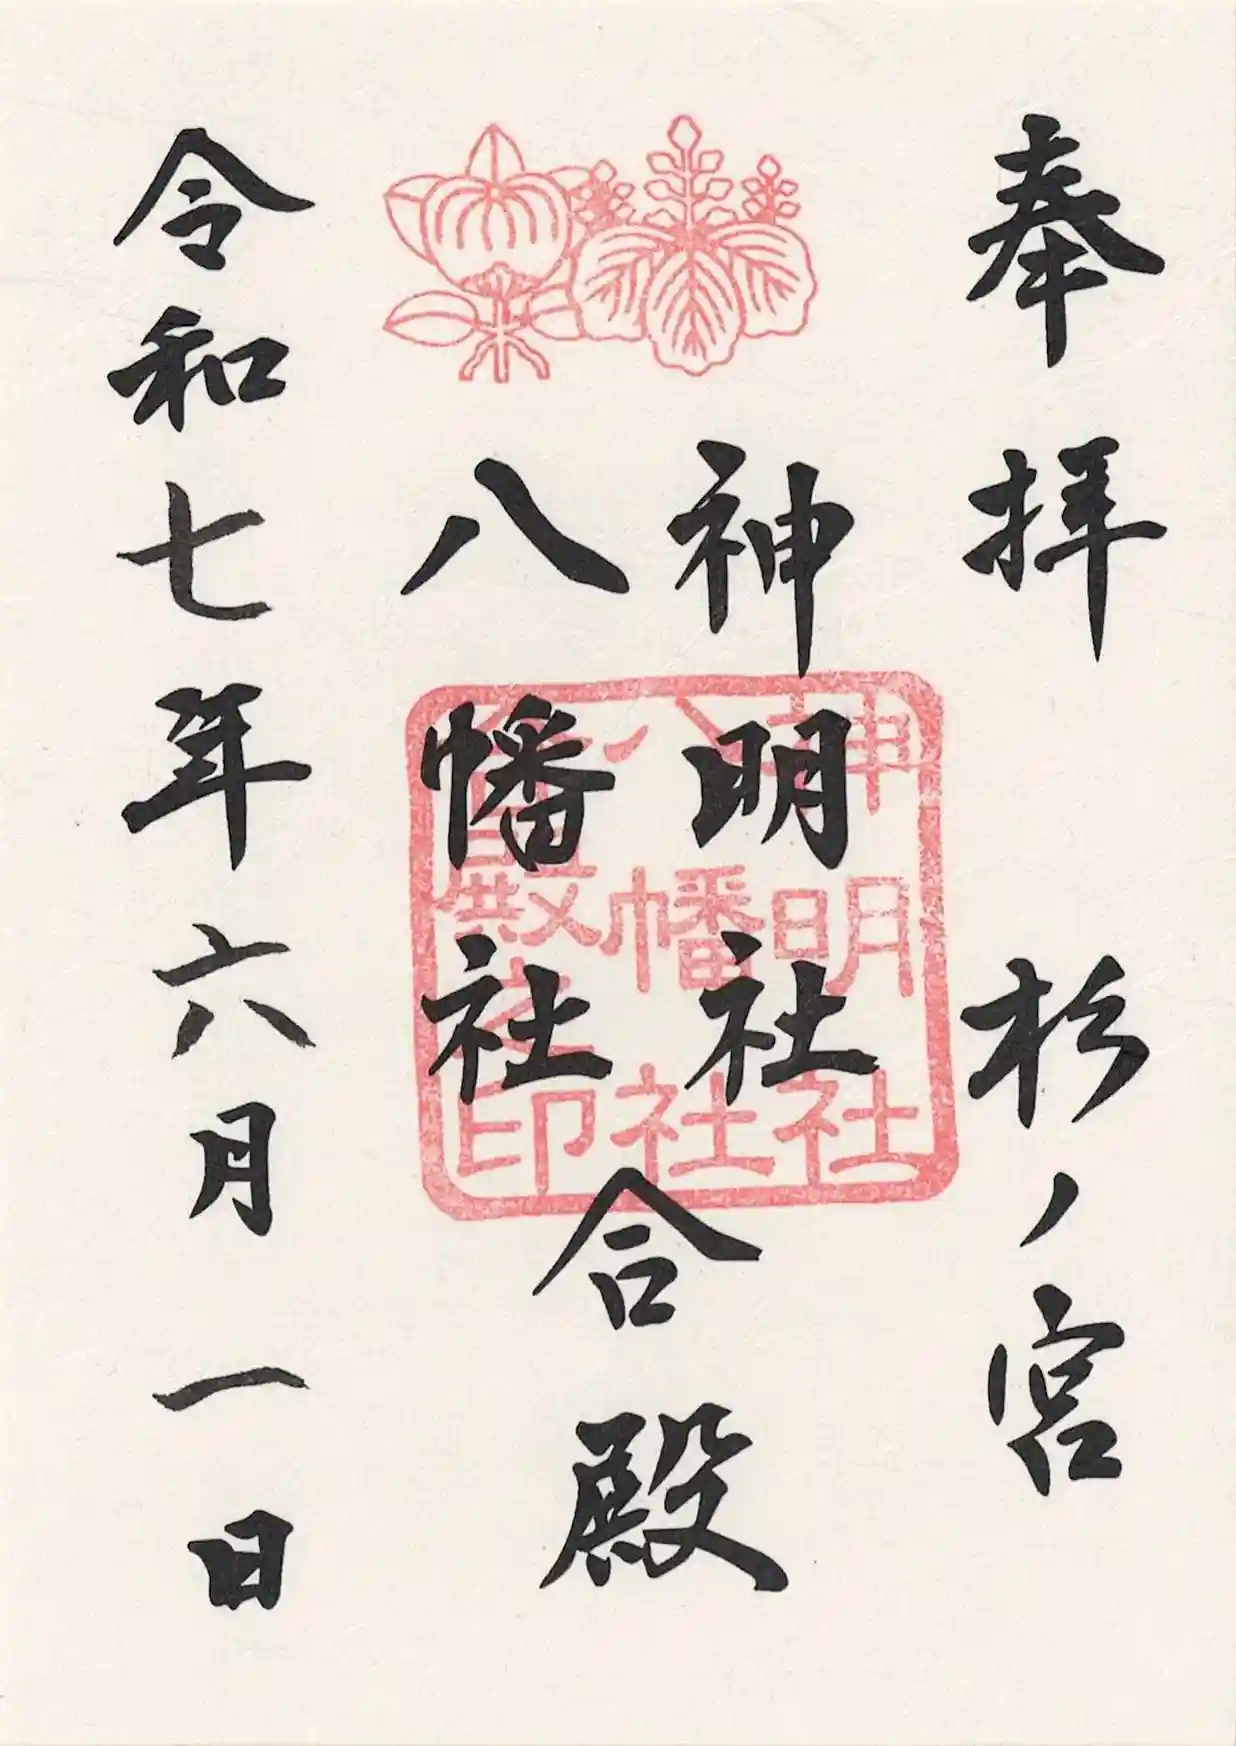 奉拝 杉ノ宮
神明社
八幡社
合殿
令和七年六月一日
神明社
八幡社
合殿之印